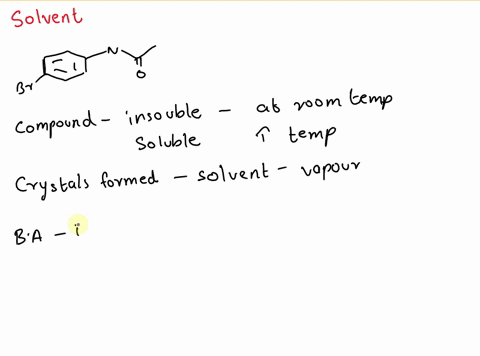 Solvent
N
Br
O
Compound - insouble - at room temp
Soluble ↑ temp
Crystals formed - solvent - vapour
B.A - i